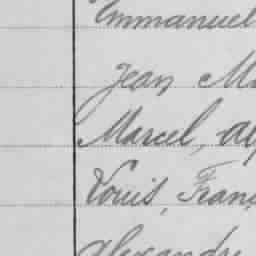 Emmanuel
Jean Ma
Marcel, Al
Louis, Fran
Alexandre